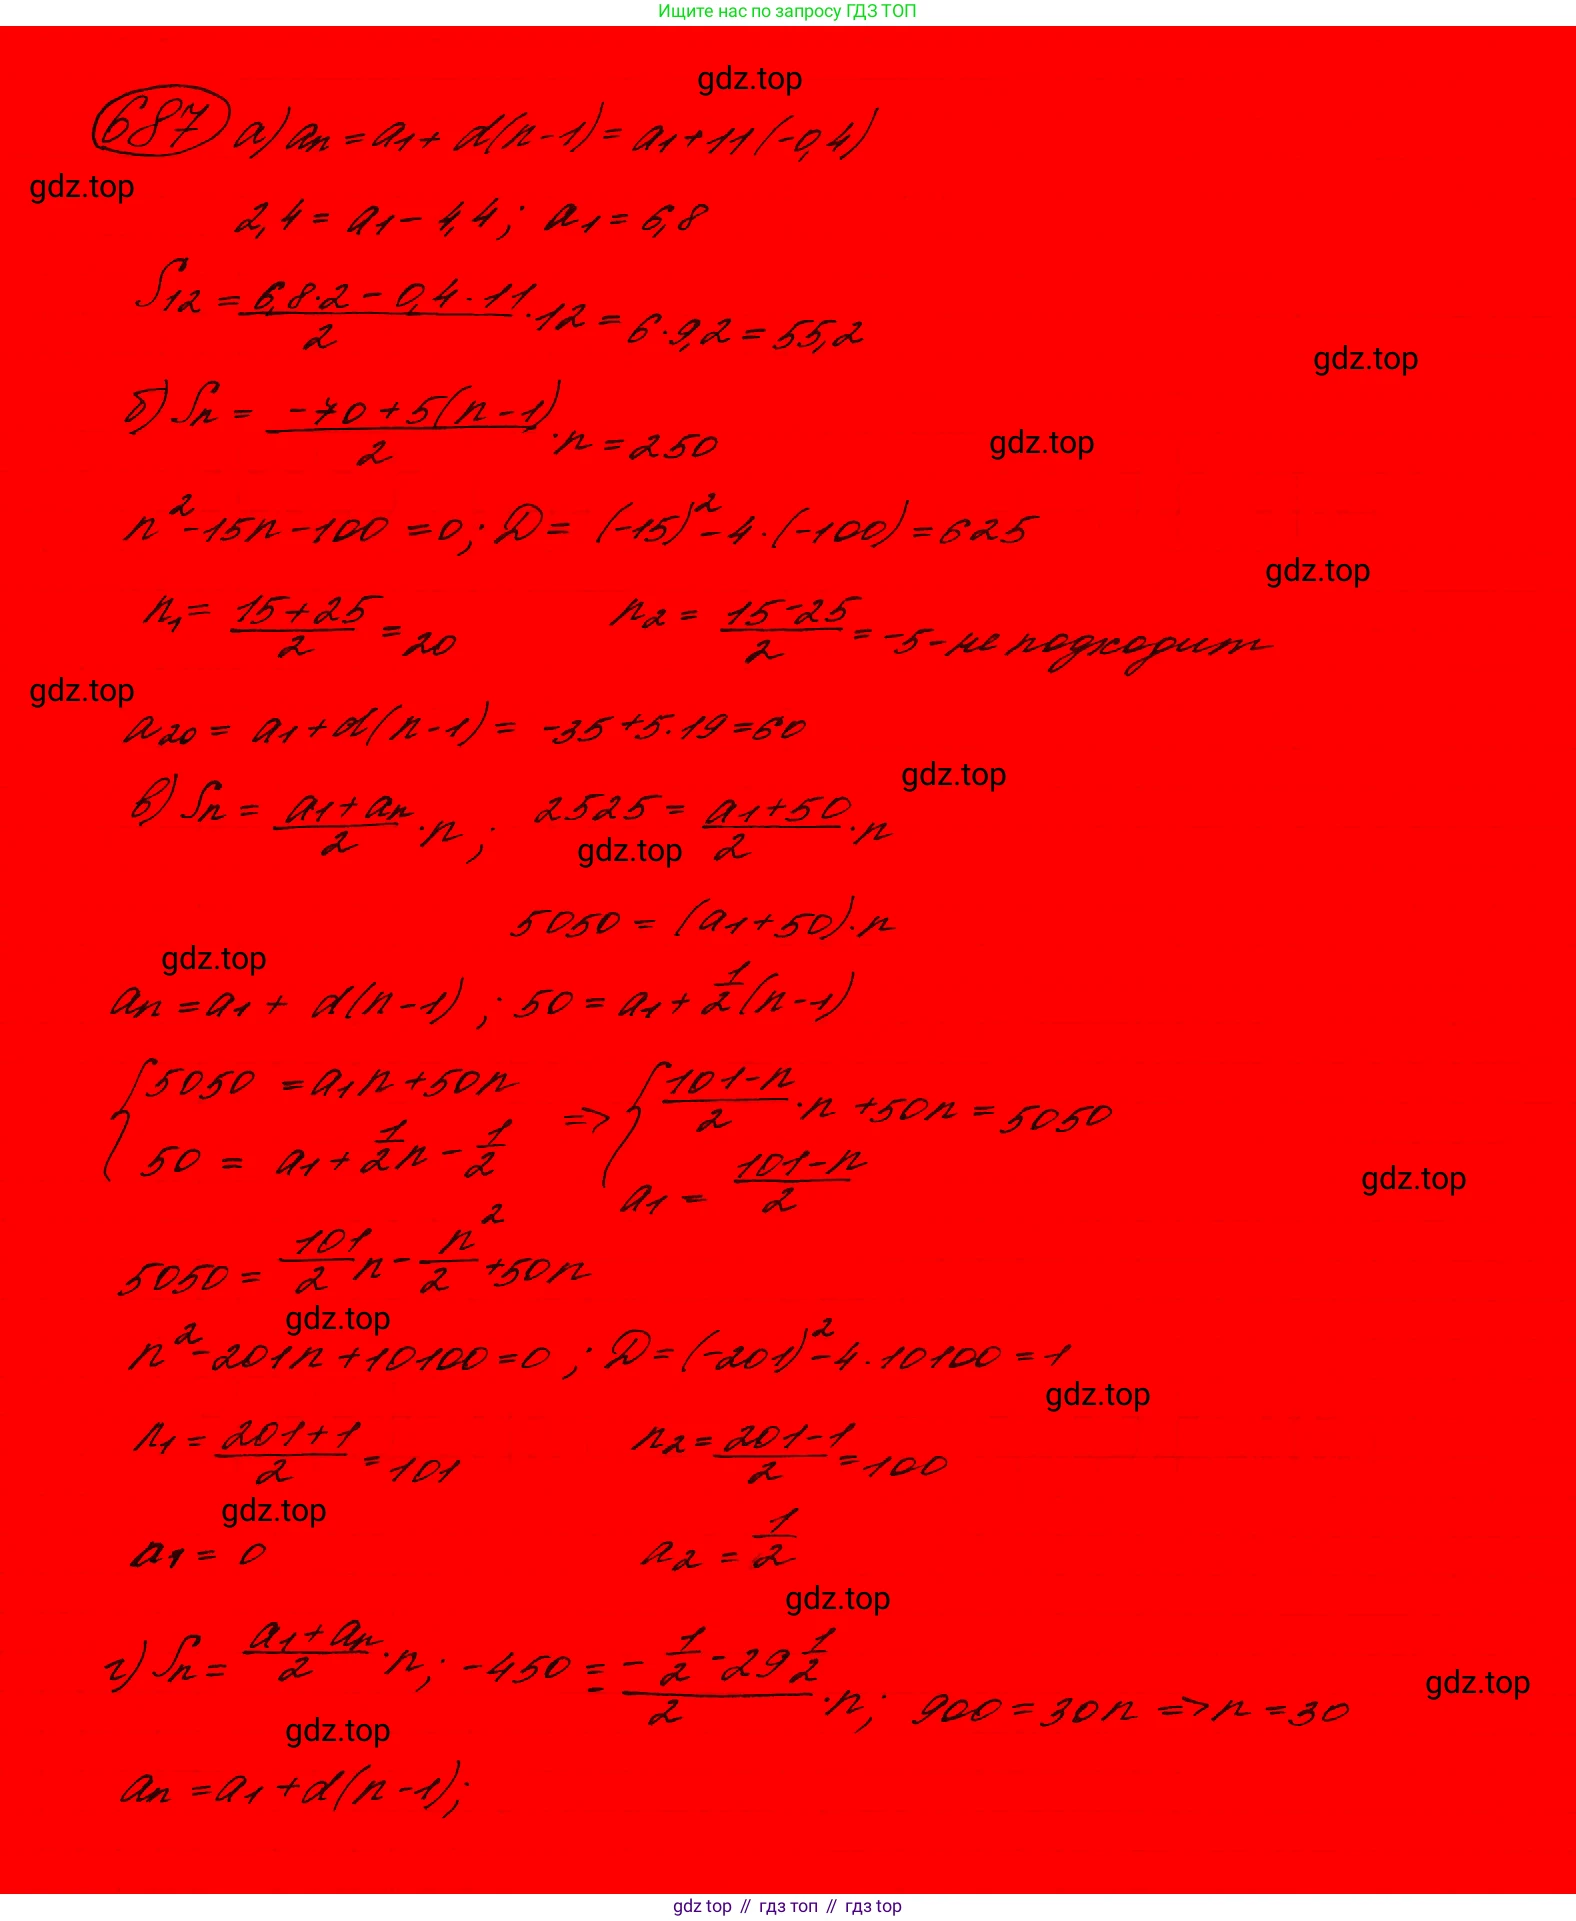 Ищите нас по запросу ГДЗ ТОП
gdz.top
687 а) an = a1 + d(n-1) = a1 + 11(-0,4)
gdz.top
2,4 = a1 - 4,4; a1 = 6,8
S12 = (6,8·2 - 0,4·11)/2 · 12 = 6·9,2 = 55,2
gdz.top
б) Sn = (-70 + 5(n-1))/2 · n = 250
gdz.top
n² - 15n - 100 = 0; D = (-15)² - 4·(-100) = 625
gdz.top
n1 = (15+25)/2 = 20 n2 = (15-25)/2 = -5 - не подходит
gdz.top
a20 = a1 + d(n-1) = -35 + 5·19 = 60
gdz.top
в) Sn = (a1 + an)/2 · n; 2525 = (a1 + 50)/2 · n
gdz.top
5050 = (a1 + 50)·n
gdz.top
an = a1 + d(n-1); 50 = a1 + 1/2(n-1)
{5050 = a1n + 50n => {(101-n)/2 · n + 50n = 5050
50 = a1 + 1/2n - 1/2 a1 = (101-n)/2
gdz.top
5050 = 101/2n - n²/2 + 50n
gdz.top
n² - 201n + 10100 = 0; D = (-201)² - 4·10100 = 1
gdz.top
n1 = (201+1)/2 = 101 n2 = (201-1)/2 = 100
gdz.top
a1 = 0 a2 = 1/2
gdz.top
г) Sn = (a1 + an)/2 · n; -450 = (-1/2 - 29 1/2)/2 · n; 900 = 30n => n = 30
gdz.top
gdz.top
an = a1 + d(n-1);
gdz top // гдз топ // гдз top